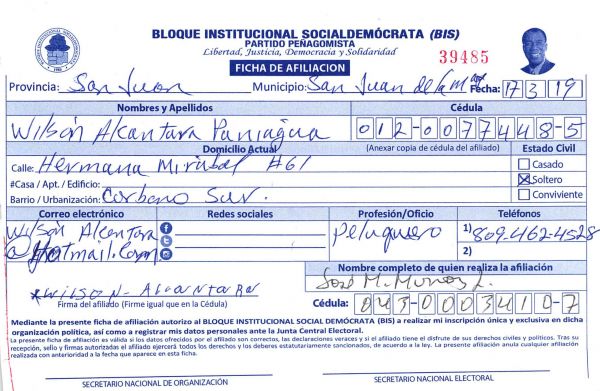 BLOQUE INSTITUCIONAL SOCIALDEMÓCRATA (BIS)
PARTIDO PEÑAGOMISTA
Libertad, Justicia, Democracia y Solidaridad
39485
FICHA DE AFILIACION
Provincia: San Juan Municipio: San Juan de la Mag Fecha: 17 3 19
Nombres y Apellidos Cédula
Wilsón Alcantara Paniagua 012-0077448-5
Domicilio Actual (Anexar copia de cédula del afiliado) Estado Civil
Calle: Hermana Mirabal #61 Casado
#Casa / Apt. / Edificio: Soltero
Barrio / Urbanización: Corbano Sur. Conviviente
Correo electrónico Redes sociales Profesión/Oficio Teléfonos
Wilsón Alcantara Peluquero 1) 809-462-4528
@hotmail.com 2)
Nombre completo de quien realiza la afiliación
José M. Muños L.
xWILSON-ALCANTARA
Firma del afiliado (Firme igual que en la Cédula) Cédula: 043-0003410-7
Mediante la presente ficha de afiliación autorizo al BLOQUE INSTITUCIONAL SOCIAL DEMÓCRATA (BIS) a realizar mi inscripción única y exclusiva en dicha
organización política, así como a registrar mis datos personales ante la Junta Central Electoral.
La presente ficha de afiliación es válida si los datos ofrecidos por el afiliado son correctos, las declaraciones veraces y si el afiliado tiene el disfrute de sus derechos civiles y políticos. Tras su
recepción, sello y firmas autorizadas el afiliado ejercerá todos los derechos y los deberes estatutariamente sancionados, de acuerdo a la ley. La presente afiliación anula cualquier afiliación
realizada con anterioridad a la fecha que aparece en esta ficha.
SECRETARIO NACIONAL DE ORGANIZACIÓN SECRETARIO NACIONAL ELECTORAL